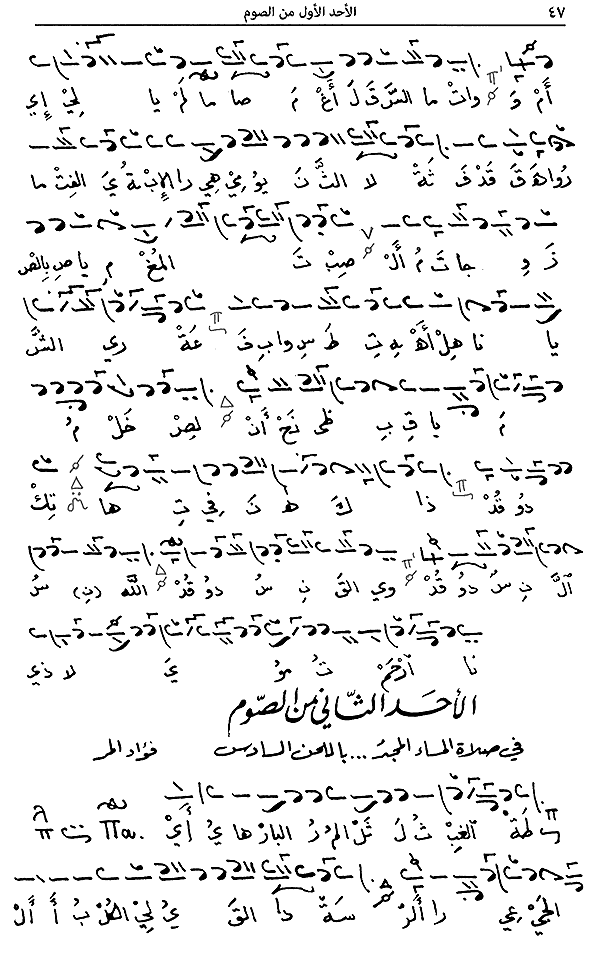 ٤٧ الأحد الأول من الصوم
أَمْ وَ واتْ ما السَّ قَ لَ أَغْ مَ صا ما لَمْ يا لِيْ إِي
قَ قَدْ فَ ثَةْ لا الثَّ نَ يو ئِيْ هِي دا الإِبْ نَةُ يَ الغِثْ ما
ذَ وِ جا تَ مُ أَلْ صِبْ تَ المُغْ مِ يا صِ بِالصْ
يا نا هِلْ أَهْ بِهِ تِ طَ سِ وابِ فَ عَةْ ري الشَّ
مَ يا قِ بِ ظى نَحْ أَنْ لِصْ خَلْ مُ
دو قُدْ ذا كَ هَ نَ في تِ ها تِكْ
أَلَّ نِ سُ دو قُدْ وي القَ نِ سُ دو قُدْ اللَّه (نِ) سُ
نا أرْحَمْ تُ مؤ يَ لا ذي
الأحَد الثّاني من الصّوم
في صلاة المساء المجيد ... باللحن السادس فؤاد المر
طَةْ الغِبْ ثُ لَ ثَلْ المُ رُ البارْ ها يُ أَيْ
الحَيْ عي را ألرْ سَةْ دا القَ يُ لِيْ الكُلْ بُ أَ أَلْ